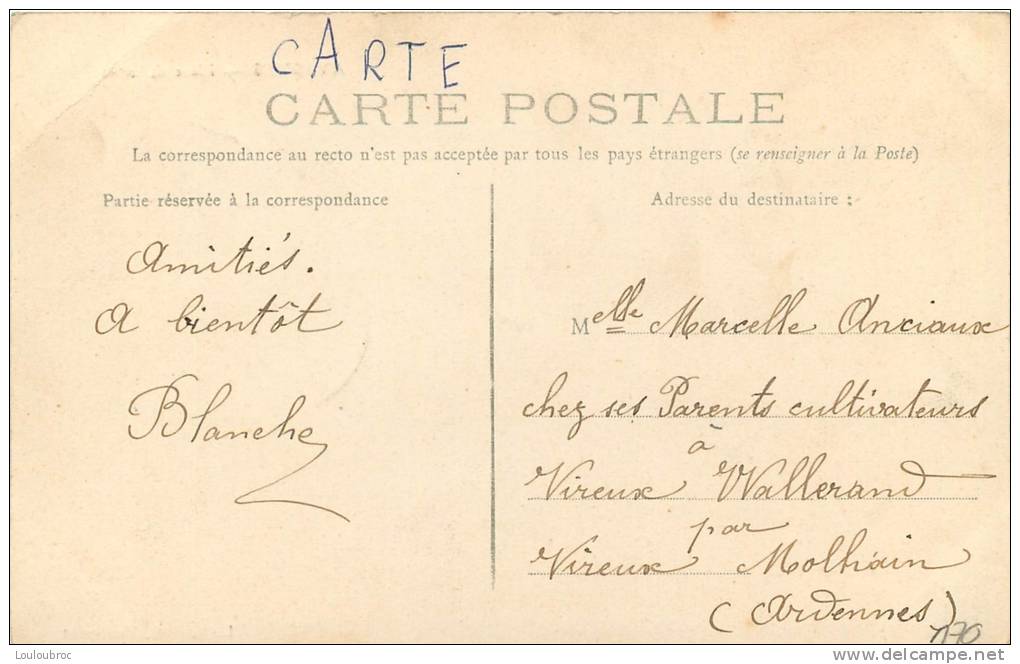 CARTE
CARTE POSTALE
La correspondance au recto n'est pas acceptée par tous les pays étrangers (se renseigner à la Poste)
Partie réservée à la correspondance
Amitiés.
A bientôt
Blanche
Adresse du destinataire :
Melle Marcelle Anciaux
chez ses Parents cultivateurs
à
Vireux Wallerand
par
Vireux Molhain
(Ardennes)
Louloubroc
http://www.delcampe.net